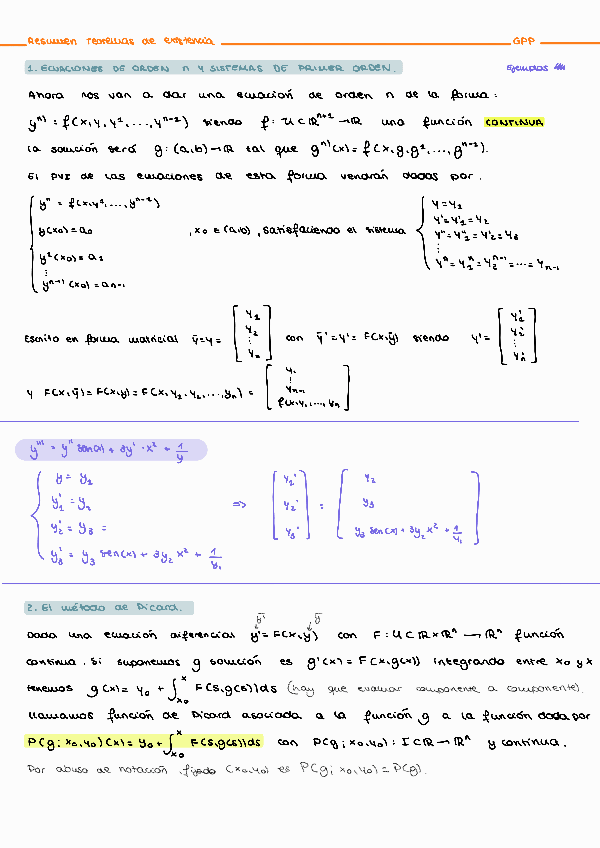 Resumen teoremas de existencia GPP
1. ECUACIONES DE ORDEN n Y SISTEMAS DE PRIMER ORDEN. Ejemplos
Ahora nos van a dar una ecuación de orden n de la forma:
yⁿ⁾ = f(x,y,y¹,...,yⁿ⁻¹) siendo f: U⊂ℝⁿ⁺¹→ℝ una función CONTINUA
la solución será g: (a,b)→ℝ tal que gⁿ⁾(x) = f(x,g,g¹,...,gⁿ⁻¹).
El PVI de las ecuaciones de esta forma vendrán dadas por:
yⁿ = f(x,y¹,...,yⁿ⁻¹)
y(x₀) = a₀
y¹(x₀) = a₁
⋮
yⁿ⁻¹(x₀) = aₙ₋₁
, x₀ ∈ (a,b), satisfaciendo el sistema
y = y₁
y' = y'₁ = y₂
y'' = y''₁ = y'₂ = y₃
⋮
yⁿ = y₁ⁿ = y₂ⁿ⁻¹ = ... = yₙ₋₁
Escrito en forma matricial ȳ = y = [y₁ y₂ ⋮ yₙ] con ȳ' = y' = F(x,ȳ) siendo y' = [y₁' y₂' ⋮ yₙ']
y F(x,ȳ) = F(x,y) = F(x,y₁,y₂,...,yₙ) = [y₁ ⋮ yₙ₋₁ f(x,y₁,...,yₙ]
y''' = y'' sen(x) + 3y' · x² + 1/y
y = y₁
y₁' = y₂
y₂' = y₃ =
y₃' = y₃ sen(x) + 3y₂ x² + 1/y₁
=> [y₁' y₂' y₃'] = [y₂ y₃ y₃ sen(x) + 3y₂ x² + 1/y₁]
2. El método de Picard.
ȳ' ȳ
Dada una ecuación diferencial y' = F(x,y) con F: U⊂ℝ×ℝⁿ → ℝⁿ función
continua. Si suponemos g solución es g'(x) = F(x,g(x)) integrando entre x₀ y x
tenemos g(x) = y₀ + ∫ₓ₀ˣ F(s,g(s))ds (hay que evaluar componente a componente).
Llamamos función de Picard asociada a la función g a la función dada por
P(g; x₀,y₀)(x) = y₀ + ∫ₓ₀ˣ F(s,g(s))ds con P(g; x₀,y₀): I⊂ℝ→ℝⁿ y continua.
Por abuso de notación, fijado (x₀,y₀) es P(g; x₀,y₀) = P(g).